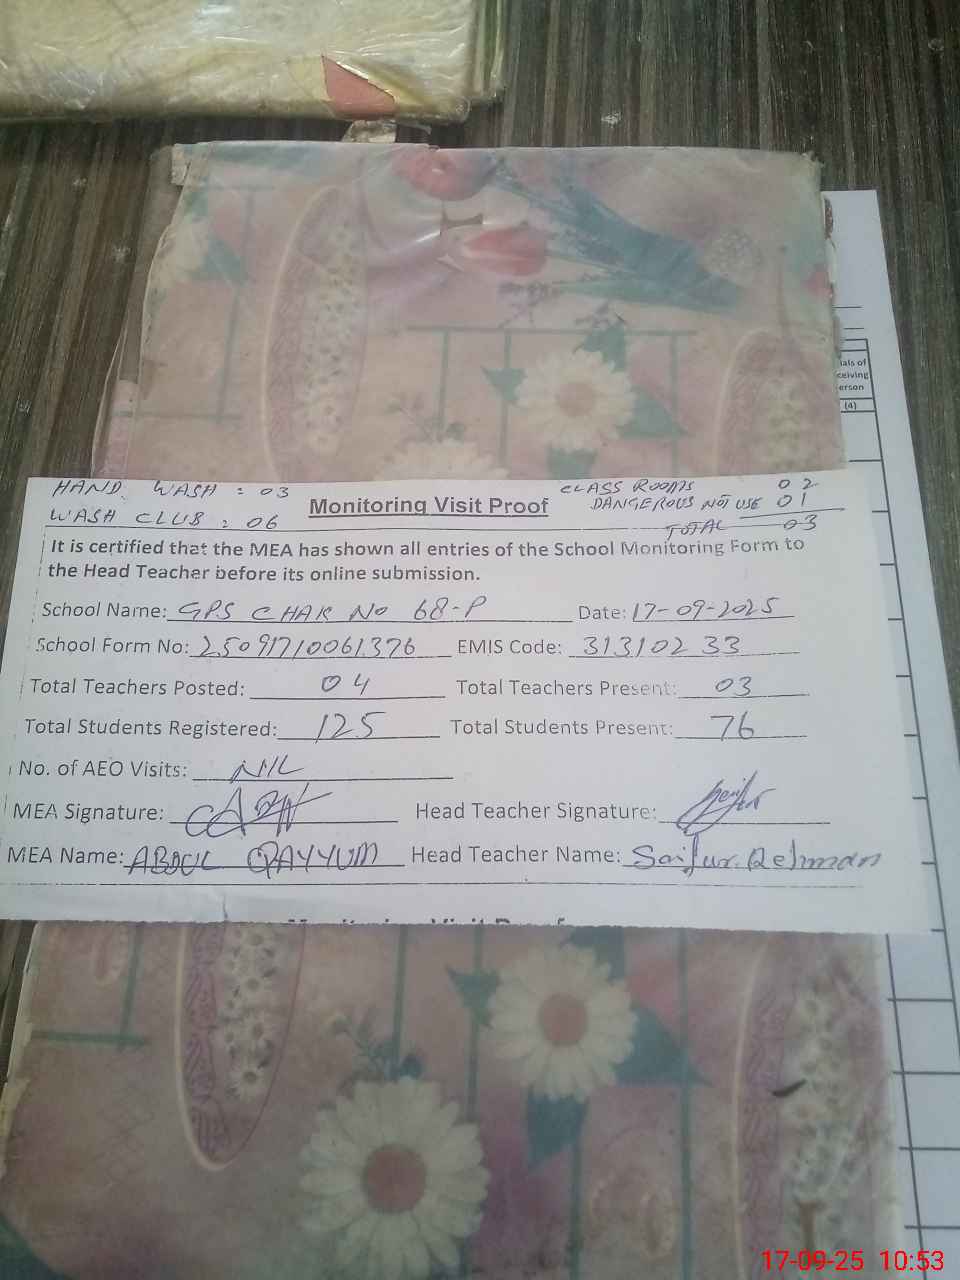 HAND WASH : 03
CLASS ROOMS 02
Monitoring Visit Proof
DANGEROUS NOT USE 01
WASH CLUB : 06
TOTAL 03
It is certified that the MEA has shown all entries of the School Monitoring Form to
the Head Teacher before its online submission.
School Name: GPS CHAK No 68-P Date: 17-09-2025
School Form No: 25091710061376 EMIS Code: 31310233
Total Teachers Posted: 04 Total Teachers Present: 03
Total Students Registered: 125 Total Students Present: 76
No. of AEO Visits: NIL
MEA Signature: Head Teacher Signature:
MEA Name: ABDUL QAYYUM Head Teacher Name: Saif ur Rehman
ials of
ceiving
erson
(4)
17-09-25 10:53